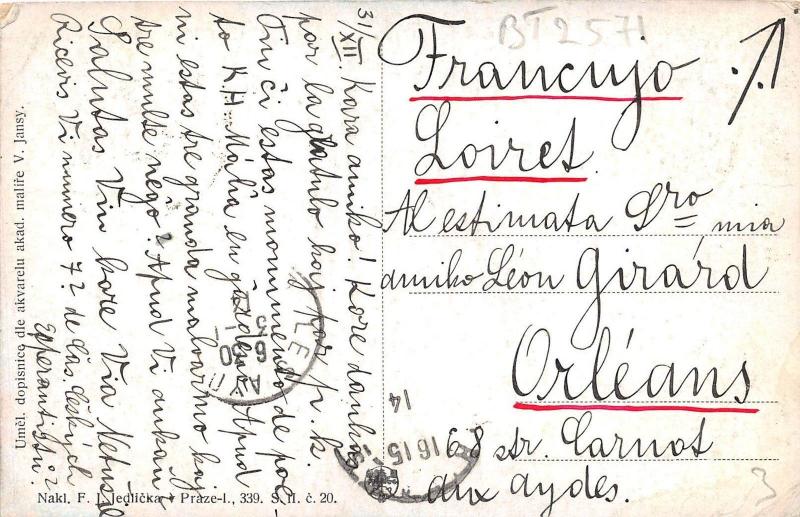 BT 2571
31/XII. Kara amiko! Kore dankas
por la gratulo kaj kor. p. k.
Ĉu ĉi estas monumento de poe-
to K. H. Mácha en ĝardeno. Apud
ni estas tre granda malvarmo kaj
tre multe neĝo? Apud Vi ankaŭ?
Salutas Vin kore Via
Ricevis Vi numero 7? de Čas. Českých
Esperantistů?
Francujo
Loiret
Al estimata Sro mia
amiko Léon Girárd
Orléans
68 str. Carnot
aux aydes.
14
3
Uměl. dopisnice dle akvarelu akad. malíře V. Jansy.
Nakl. F. J. Jedlička • Praze-I., 339. S. II. č. 20.